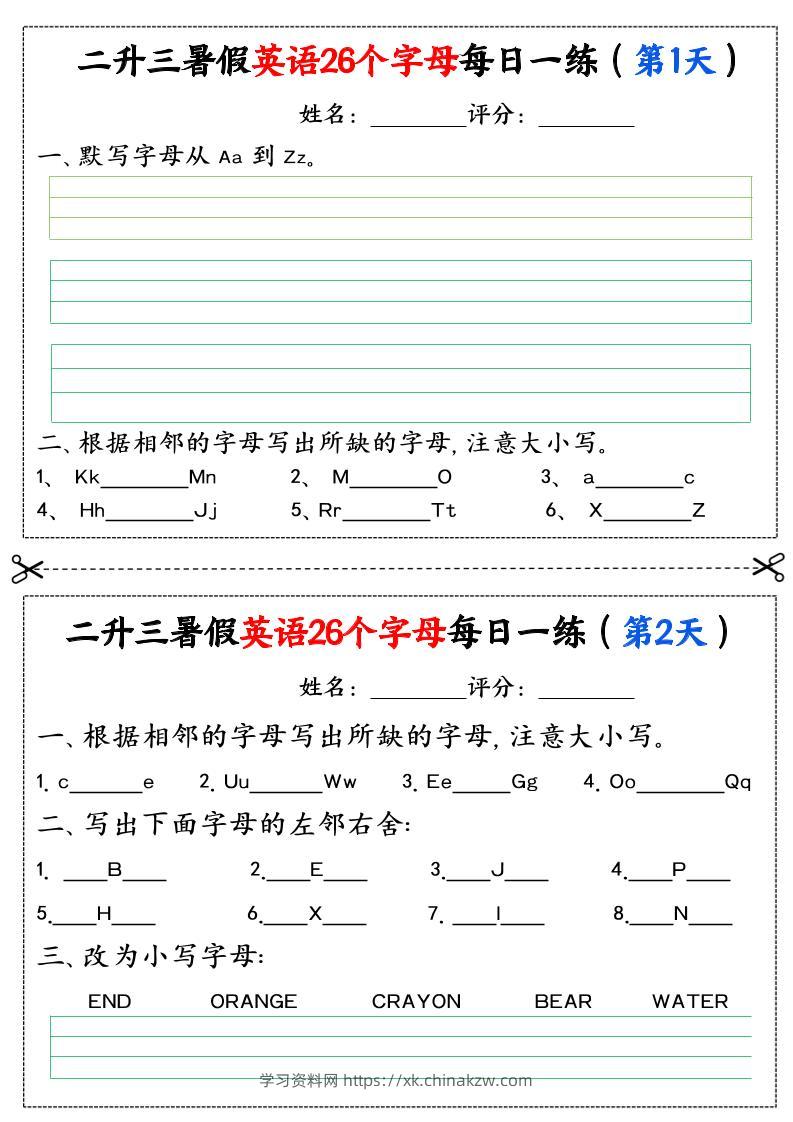 二升三暑假英语26个字母每日一练（第1天）
姓名：________评分：________
一、默写字母从 Aa 到 Zz。
二、根据相邻的字母写出所缺的字母,注意大小写。
1、 Kk________Mn 2、 M________O 3、 a________c
4、 Hh________Jj 5、Rr________Tt 6、 X________Z
二升三暑假英语26个字母每日一练（第2天）
姓名：________评分：________
一、根据相邻的字母写出所缺的字母,注意大小写。
1. c_______e 2. Uu_______Ww 3. Ee______Gg 4. Oo________Qq
二、写出下面字母的左邻右舍:
1. ____B____ 2.____E____ 3.____J____ 4.____P____
5.____H____ 6.____X____ 7. ____I____ 8.____N____
三、改为小写字母:
END ORANGE CRAYON BEAR WATER
学习资料网 https://xk.chinakzw.com